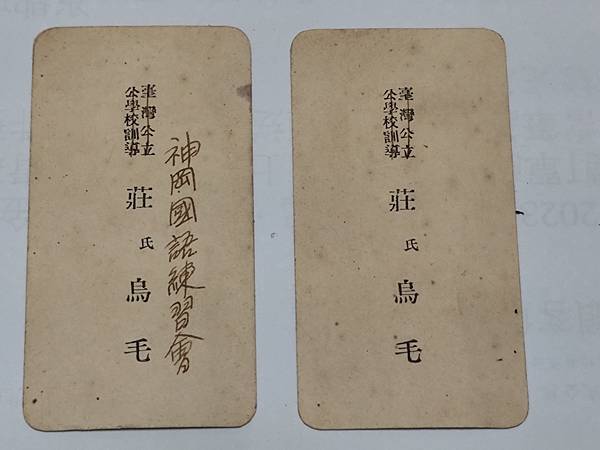 臺灣公立
公學校訓導
莊氏烏毛
神岡國語練習會
臺灣公立
公學校訓導
莊氏烏毛